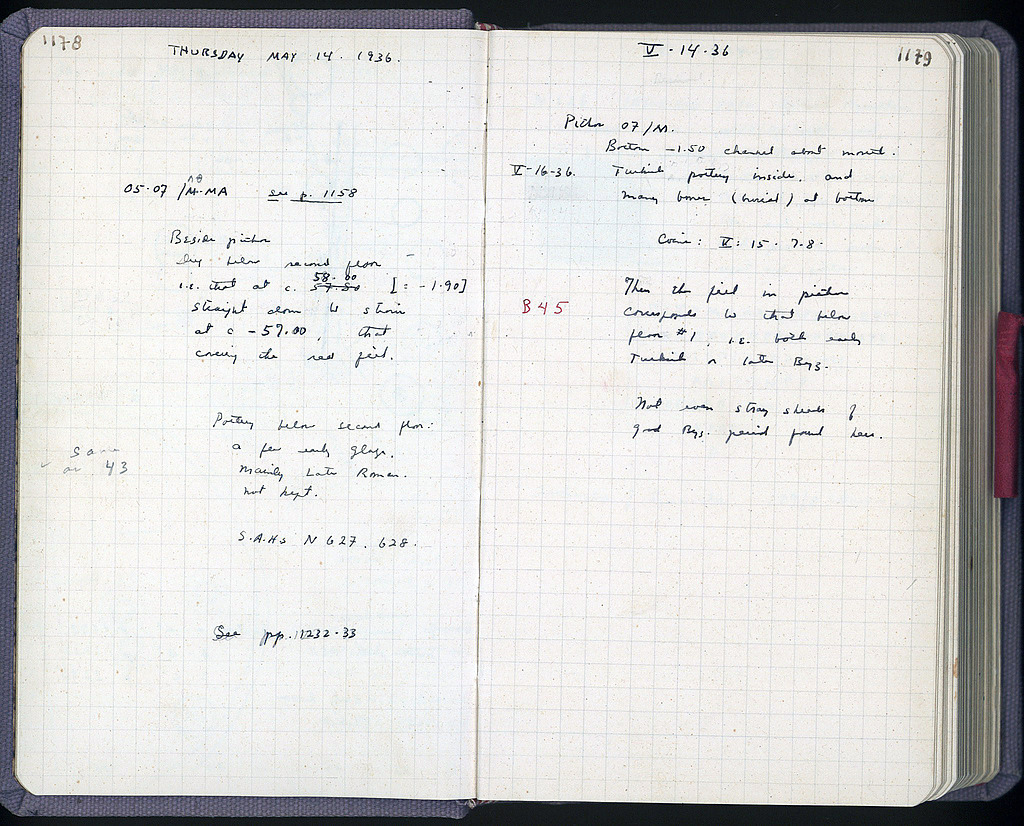 1178
THURSDAY MAY 14. 1936.
ΛΘ
05-07 /M-MA see p. 1158
Beside pithos
dig below second floor
i.e. that at c. 57.50 58.00 [= -1.90]
straight down to strosis
at c -59.00, that
covering the red fill.
Pottery below second floor:
a few early glaze.
Mainly Late Roman.
not kept.
same
as 43
S.A.Hs N 627. 628.
See pp. 1232-33
V-14-36
1179
Pithos 07/M.
Bottom -1.50 channel about mouth.
V-16-36. Turkish pottery inside, and
many bones (burial) at bottom
Coins: V: 15. 7-8.
B45
Then the fill in pithos
corresponds to that below
floor #1, i.e. both early
Turkish or late Byz.
Not even stray sherds of
good Byz. period found here.